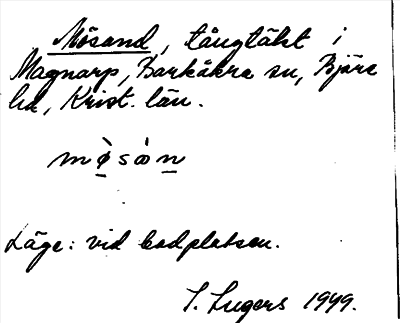 Mösand, tångtäkt i
Magnarp, Barkåkra sn, Bjäre
hd, Krist. län.
mø̀sòn
Läge: vid badplatsen.
S. Lugers 1949.